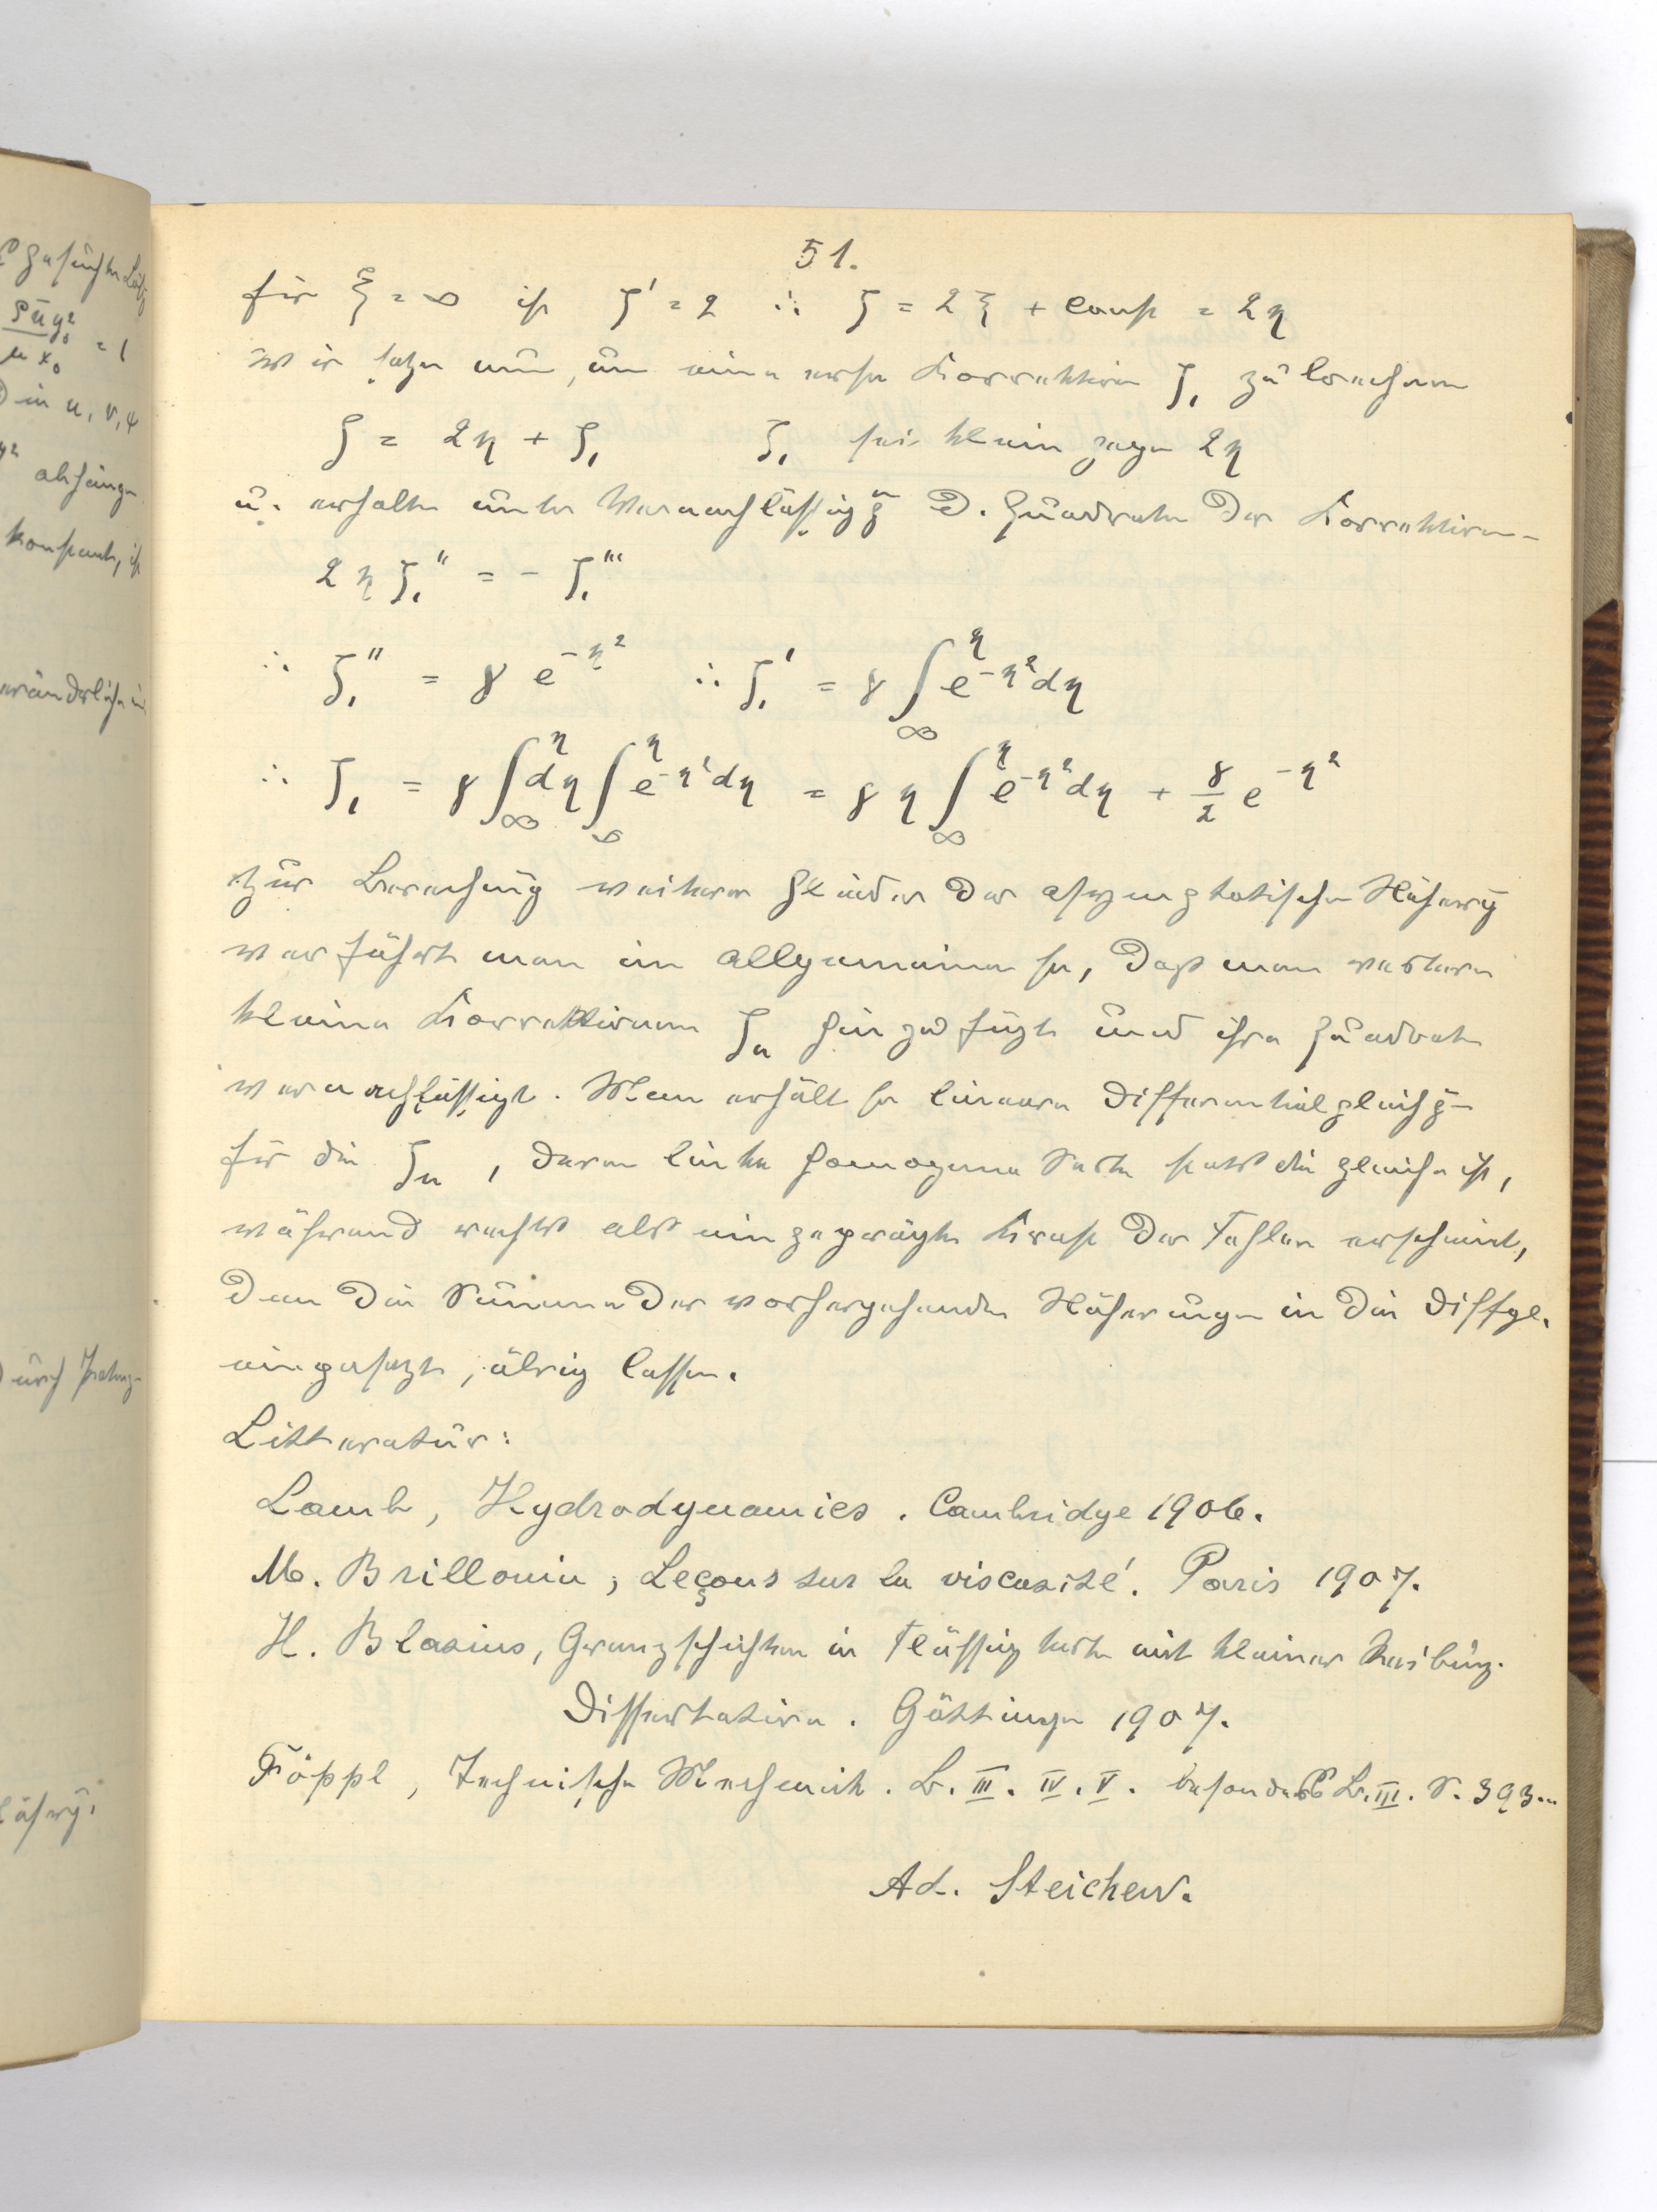 51.
für ξ = ∞ ist ζ' = 2 ∴ ζ = 2ξ + const = 2η
wir setzen nun, um eine erste Korrektion ζ₁ zu berechnen
ζ = 2η + ζ₁ ζ₁ sei klein gegen 2η
u. erhalten unter Vernachlässigg d. Quadrate der Korrektion
2ηζ₁'' = - ζ₁'''
∴ ζ₁'' = γ e^{-η²} ∴ ζ₁' = γ ∫_∞^η e^{-η²} dη
∴ ζ₁ = γ ∫_∞^η dη ∫_∞^η e^{-η²} dη = γ η ∫_∞^η e^{-η²} dη + γ/2 e^{-η²}
Zur Berechnung weiterer Glieder der asymptotischen Näherung
verfährt man im Allgemeinen so, dass man weitere
kleine Korrektionen ζₙ hinzufügt und ihre Quadrate
vernachlässigt. Man erhält so lineare Differentialgleichg
für die ζₙ, deren linke homogene Seite stets die gleiche ist,
während rechts als eingeprägte Kraft der Fehler erscheint,
den die Summe der vorhergehenden Näherungen in die Diffgl.
eingesetzt, übrig lassen.
Litteratur:
Lamb, Hydrodynamics. Cambridge 1906.
M. Brillouin, Leçons sur la viscosité. Paris 1907.
H. Blasius, Grenzschichten in Flüssigkeiten mit kleiner Reibung.
Dissertation. Göttingen 1907.
Föppl, Technische Mechanik. B. III. IV. V. besonders B. III. S. 393..
Ad. Steichen.